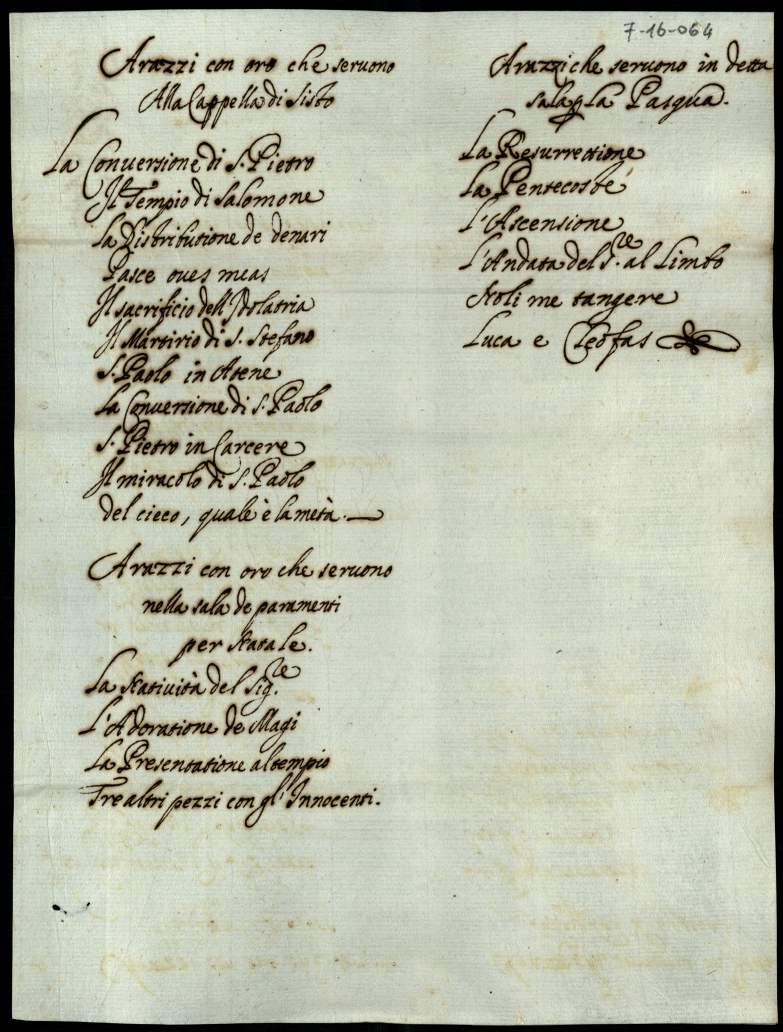 7-16-064
Arazzi con oro che seruono
Alla Cappella di Sisto
La Conuersione di S. Pietro
Il Tempio di Salomone
La Distributione de denari
Pasce oues meas
Il sacrificio dell'Idolatria
Il Martirio di S. Stefano
S. Paolo in Atene
La Conuersione di S. Paolo
S. Pietro in Carcere
Il miracolo di S. Paolo
del cieco, quale è la metà.
Arazzi con oro che seruono
nella sala de paramenti
per Natale.
La Natiuità del Sig.re
L'Adoratione de Magi
La Presentatione al tempio
Tre altri pezzi con gl'Innocenti.
Arazzi che seruono in detta
sala p la Pasqua.
La Resurrettione
La Pentecoste
L'Ascensione
L'Andata del S.re al Limbo
Noli me tangere
Luca e Cleofas